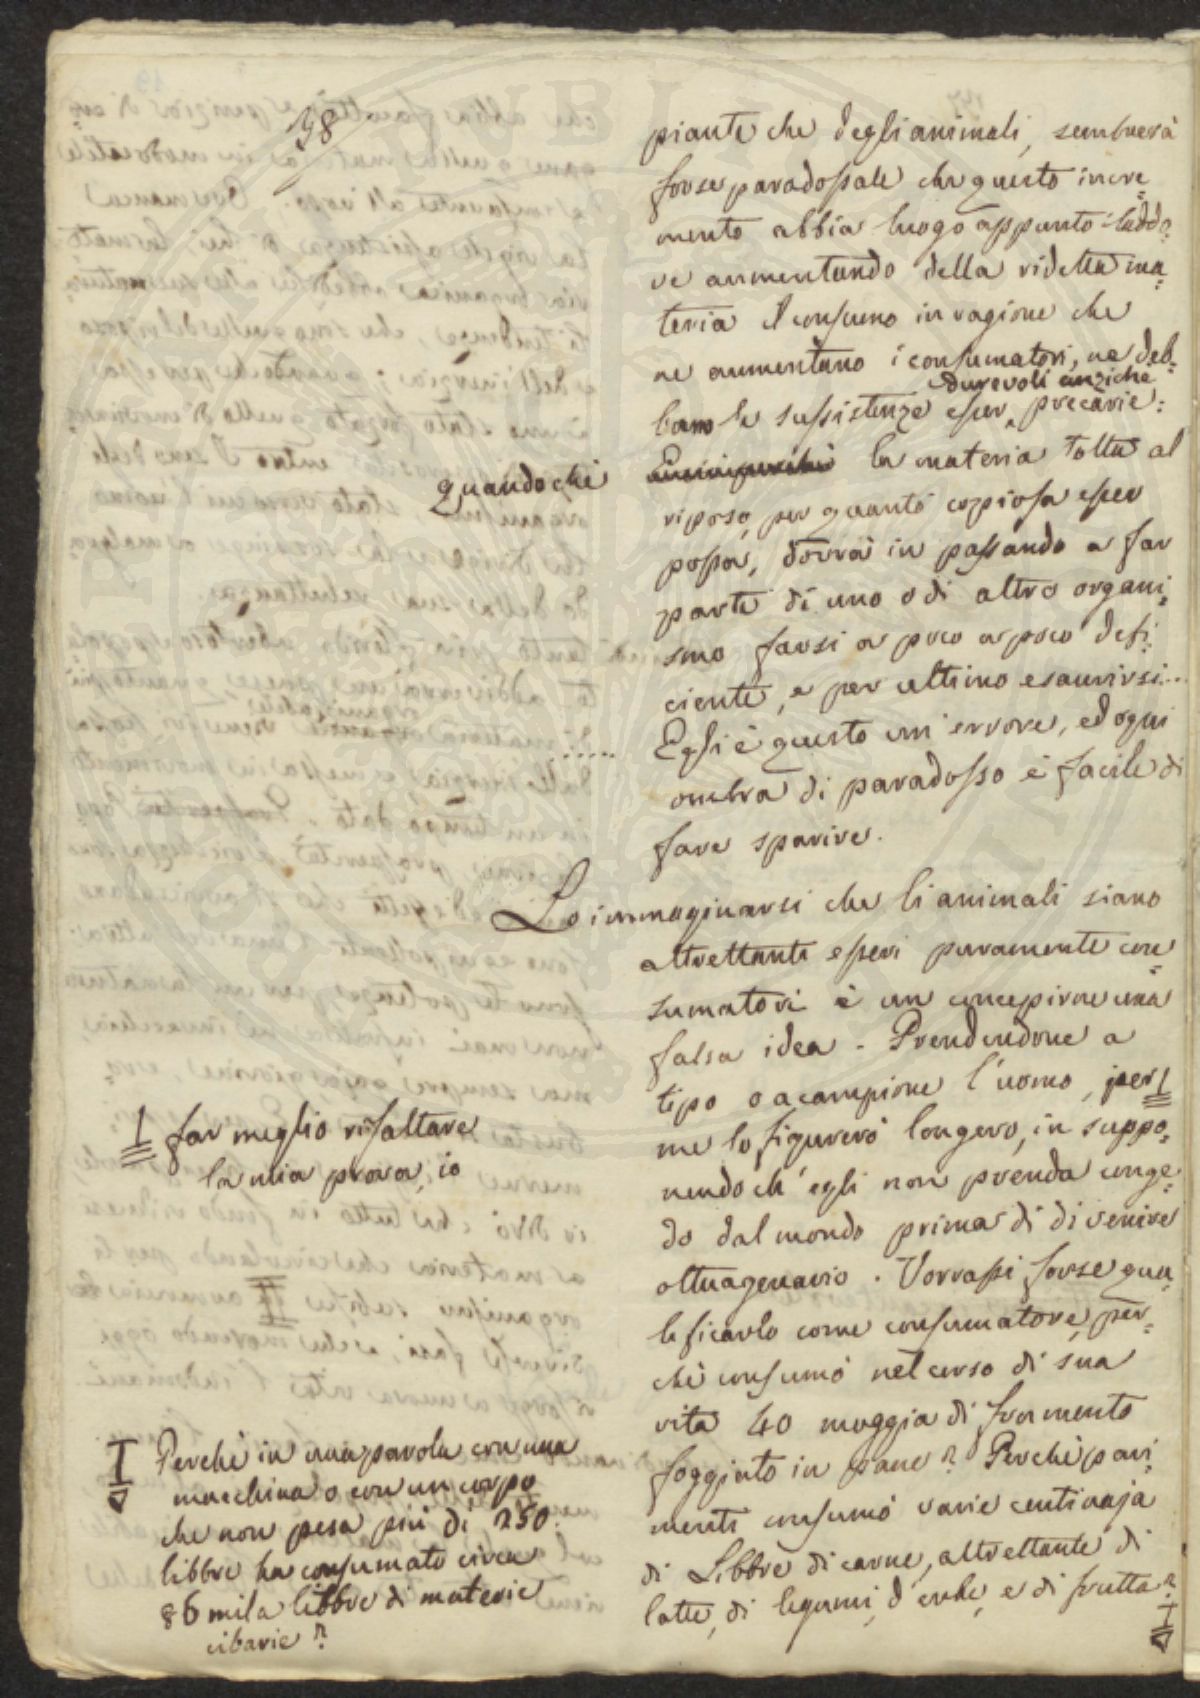 38
piante che degli animali, sembrerà
forse paradossale che questo incre
mento abbia luogo appunto laddo
ve aumentando della ridetta ma
teria il consumo in ragione che
ne aumentano i consumatori, ne deb
durevoli anziché
bano le sussistenze esser precarie:
quandoché
la materia tolta al
riposo, per quanto copiosa esser
possa, dovrà in passando a far
parte di uno o di altro organi
smo farsi a poco a poco defi
ciente, e per ultimo esaurirsi...
..... Egli è questo un'errore, ed ogni
ombra di paradosso è facile di
fare sparire.
Lo immaginarsi che li animali siano
altrettanti esseri puramente con
sumatori è un concepirne una
falsa idea - Prendendone a
tipo o a campione l'uomo, per
me lo figurerò longevo, in suppo
nendo ch'egli non prenda conge
do dal mondo prima di divenire
ottuagenario. Vorrassi forse qua
lificarlo come consumatore, per
chè consumò nel corso di sua
vita 40 moggia di frumento
foggiato in pane? Perchè pari
menti consumò varie centinaja
di Libbre di carne, altrettante di
latte, di legumi, d'erbe, e di frutta?
far meglio risaltare
la mia prova, io
Perchè in una parola con una
macchina o con un corpo
che non pesa più di 250
libbre ha consumato circa
86 mila libbre di materie
cibarie?